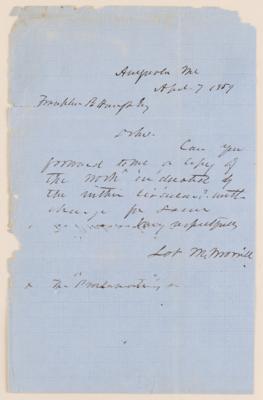 Augusta Me
April 7 1859
Franklin B Hough Esq
Can you
forward to me a copy of
the work indicated
the within circular with
charge for same
Very respectfully
Lot M. Morrill
The "Proclamations"